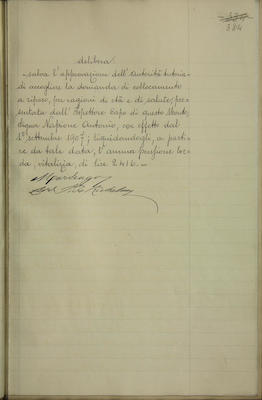 384
delibera
salva l'approvazione dell'Autorità tutoria
di accogliere la domanda di collocamento
a riposo, per ragioni di età e di salute, pre
sentata dall'Ispettore Capo di questo Monte,
Napione Antonio, con effetto dal
1° settembre 1907; liquidandogli, a parti
re da tale data, l'annua pensione lor
da, vitalizia, di lire 2416.—